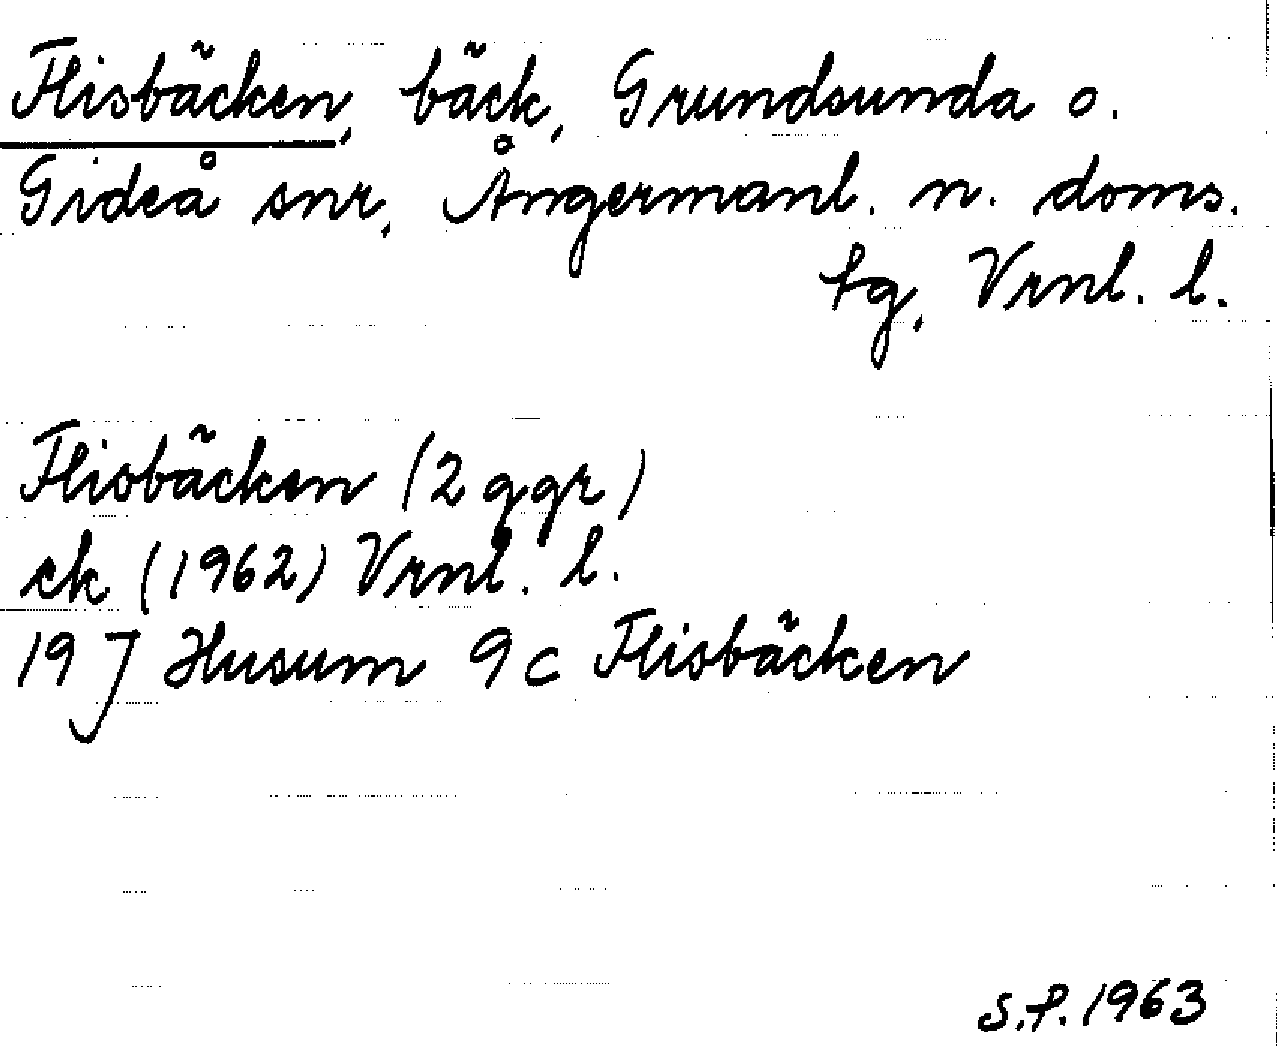 Flisbäcken, bäck, Grundsunda o.
Gideå snr, Ångermanl. n. doms.
tg, Vrnl. l.
Flisbäcken (2 ggr)
ek (1962) Vrnl. l.
19 J Husum 9 c Flisbäcken
S.P. 1963